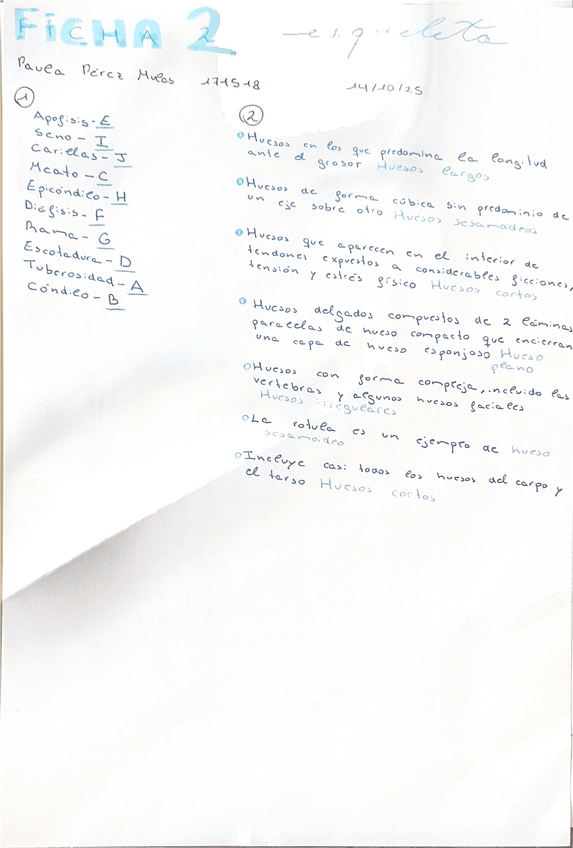 FiCHA 2
esqueleto
Paula Pérez Mulas 171518
14/10/25
1
Apofisis - E
Seno - I
Carillas - J
Meato - C
Epicóndilo - H
Diáfisis - F
Rama - G
Escotadura - D
Tuberosidad - A
Cóndilo - B
2
Huesos en los que predomina la longitud
ante el grosor Huesos largos
Huesos de forma cúbica sin predominio de
un eje sobre otro Huesos sesamoideos
Huesos que aparecen en el interior de
tendones expuestos a considerables ficciones,
tensión y estrés físico Huesos cortos
Huesos delgados compuestos de 2 láminas
paralelas de hueso compacto que encierran
una capa de hueso esponjoso Hueso
plano
Huesos con forma compleja, incluido las
vertebras y algunos huesos faciales
Huesos irregulares
La rotula es un ejemplo de hueso
sesamoideo
Incluye casi todos los huesos del carpo y
el tarso Huesos cortos